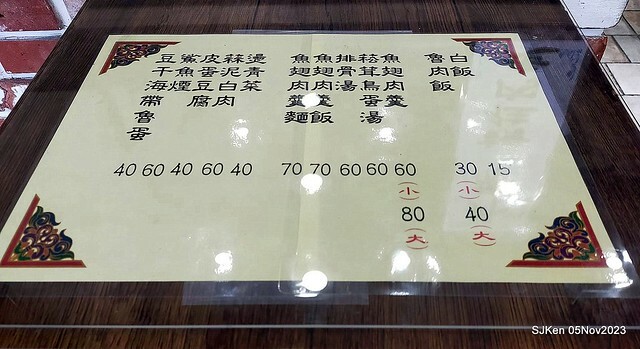 白飯 15
魯肉飯 30 (小) 40 (大)
魚翅肉羹 60 (小) 80 (大)
菘茸鳥蛋湯 60
排骨湯 60
魚翅肉羹飯 70
魚翅肉羹麵 70
燙青菜 40
蒜泥白肉 60
皮蛋豆腐 40
鯊魚煙 60
豆干海帶魯蛋 40
SJKen 05Nov2023